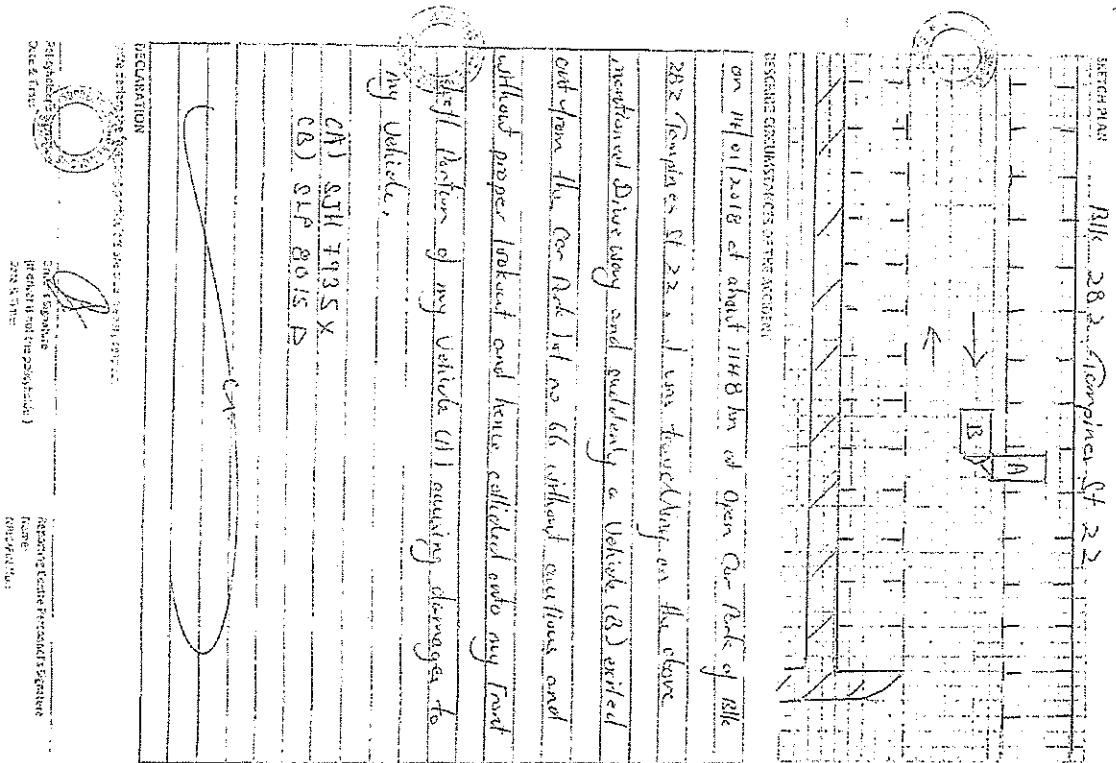 SKETCH PLAN
Blk 282 Tampines St 22
A
B
DESCRIBE CIRCUMSTANCES OF THE ACCIDENT
on 14/01/2018 at about 1148 hr at Open Car Park of Blk
282 Tampines St 22, I was travelling on the above
mentioned Driveway and suddenly a Vehicle (B) exited
out from the Car Park lot no 66 without cautious and
without proper lookout and hence collided onto my Front
Portion of my Vehicle (A) causing damages to
my Vehicle.
(A) SJH 7935X
(B) SLP 8015 D
DECLARATION
Policyholder's Signature
Date & Time:
Driver's Signature
(If driver is not the policyholder)
Date & Time:
Reporting Centre Personnel's Signature
Name: